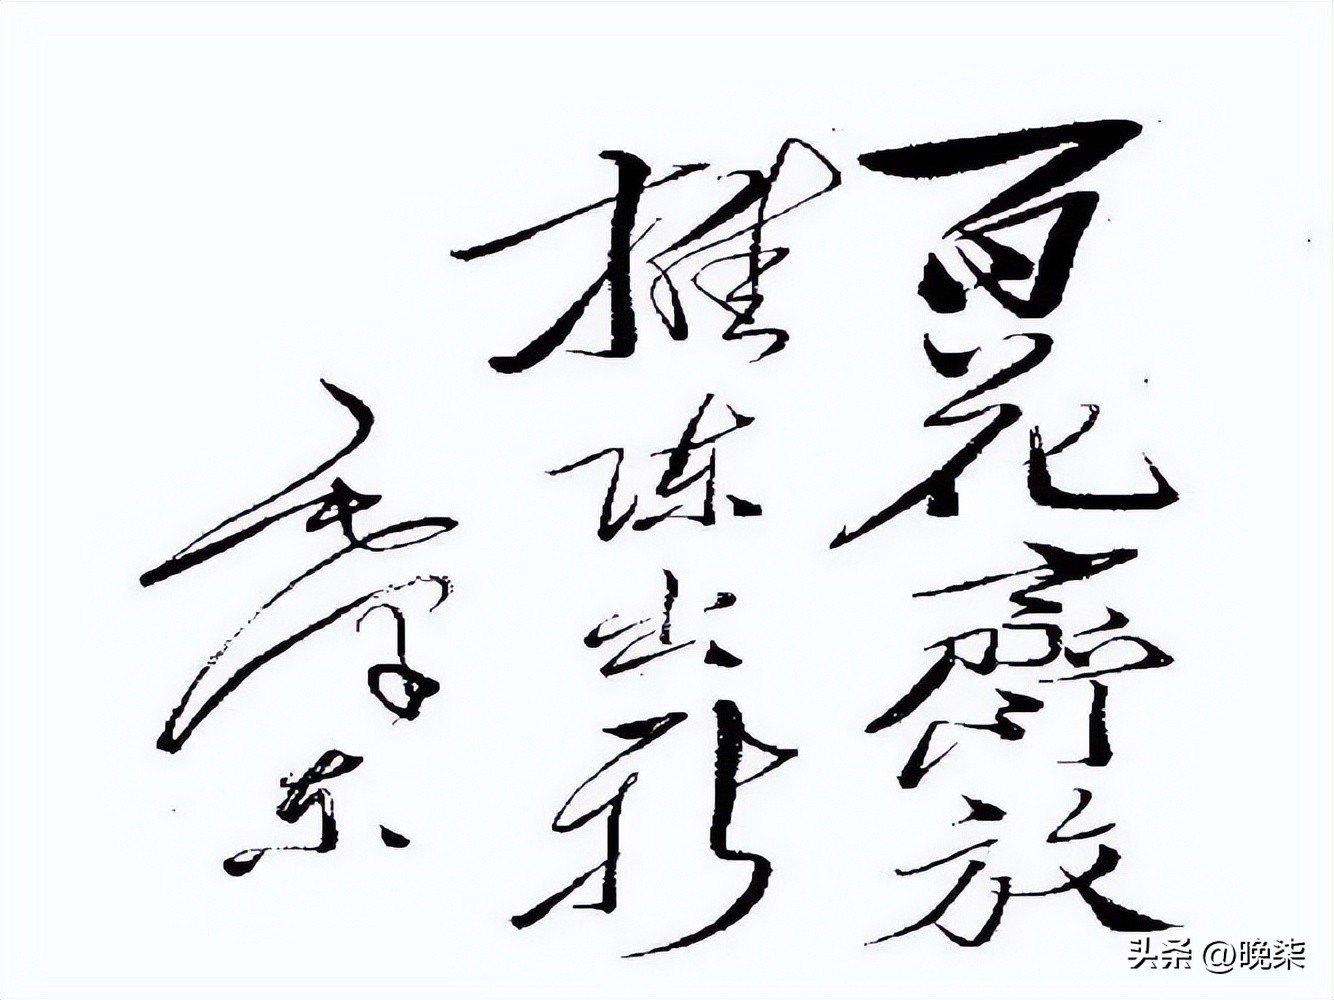 百花齊放
推陈出新
毛泽东
头条 @晚柒